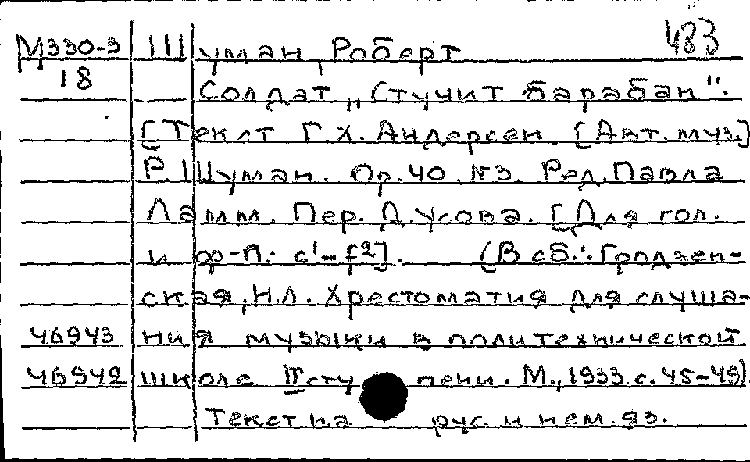 М330-3 Шуман, Роберт 483
18 Солдат „Стучит барабан".
[Текст Г.Х. Андерсен. [Авт. муз.]
Р. Шуман. Op. 40. №3. Ред. Павла
Ламм. Пер. Д. Усова. [Для гол.
и ф-п.: c¹-f²]. (В сб.: Гродзен-
ская, Н.Л. Хрестоматия для слуша-
46943 ния музыки в политехнической
46942 школе II ступени. М., 1933. с. 45-49).
Текст на рус. и нем. яз.